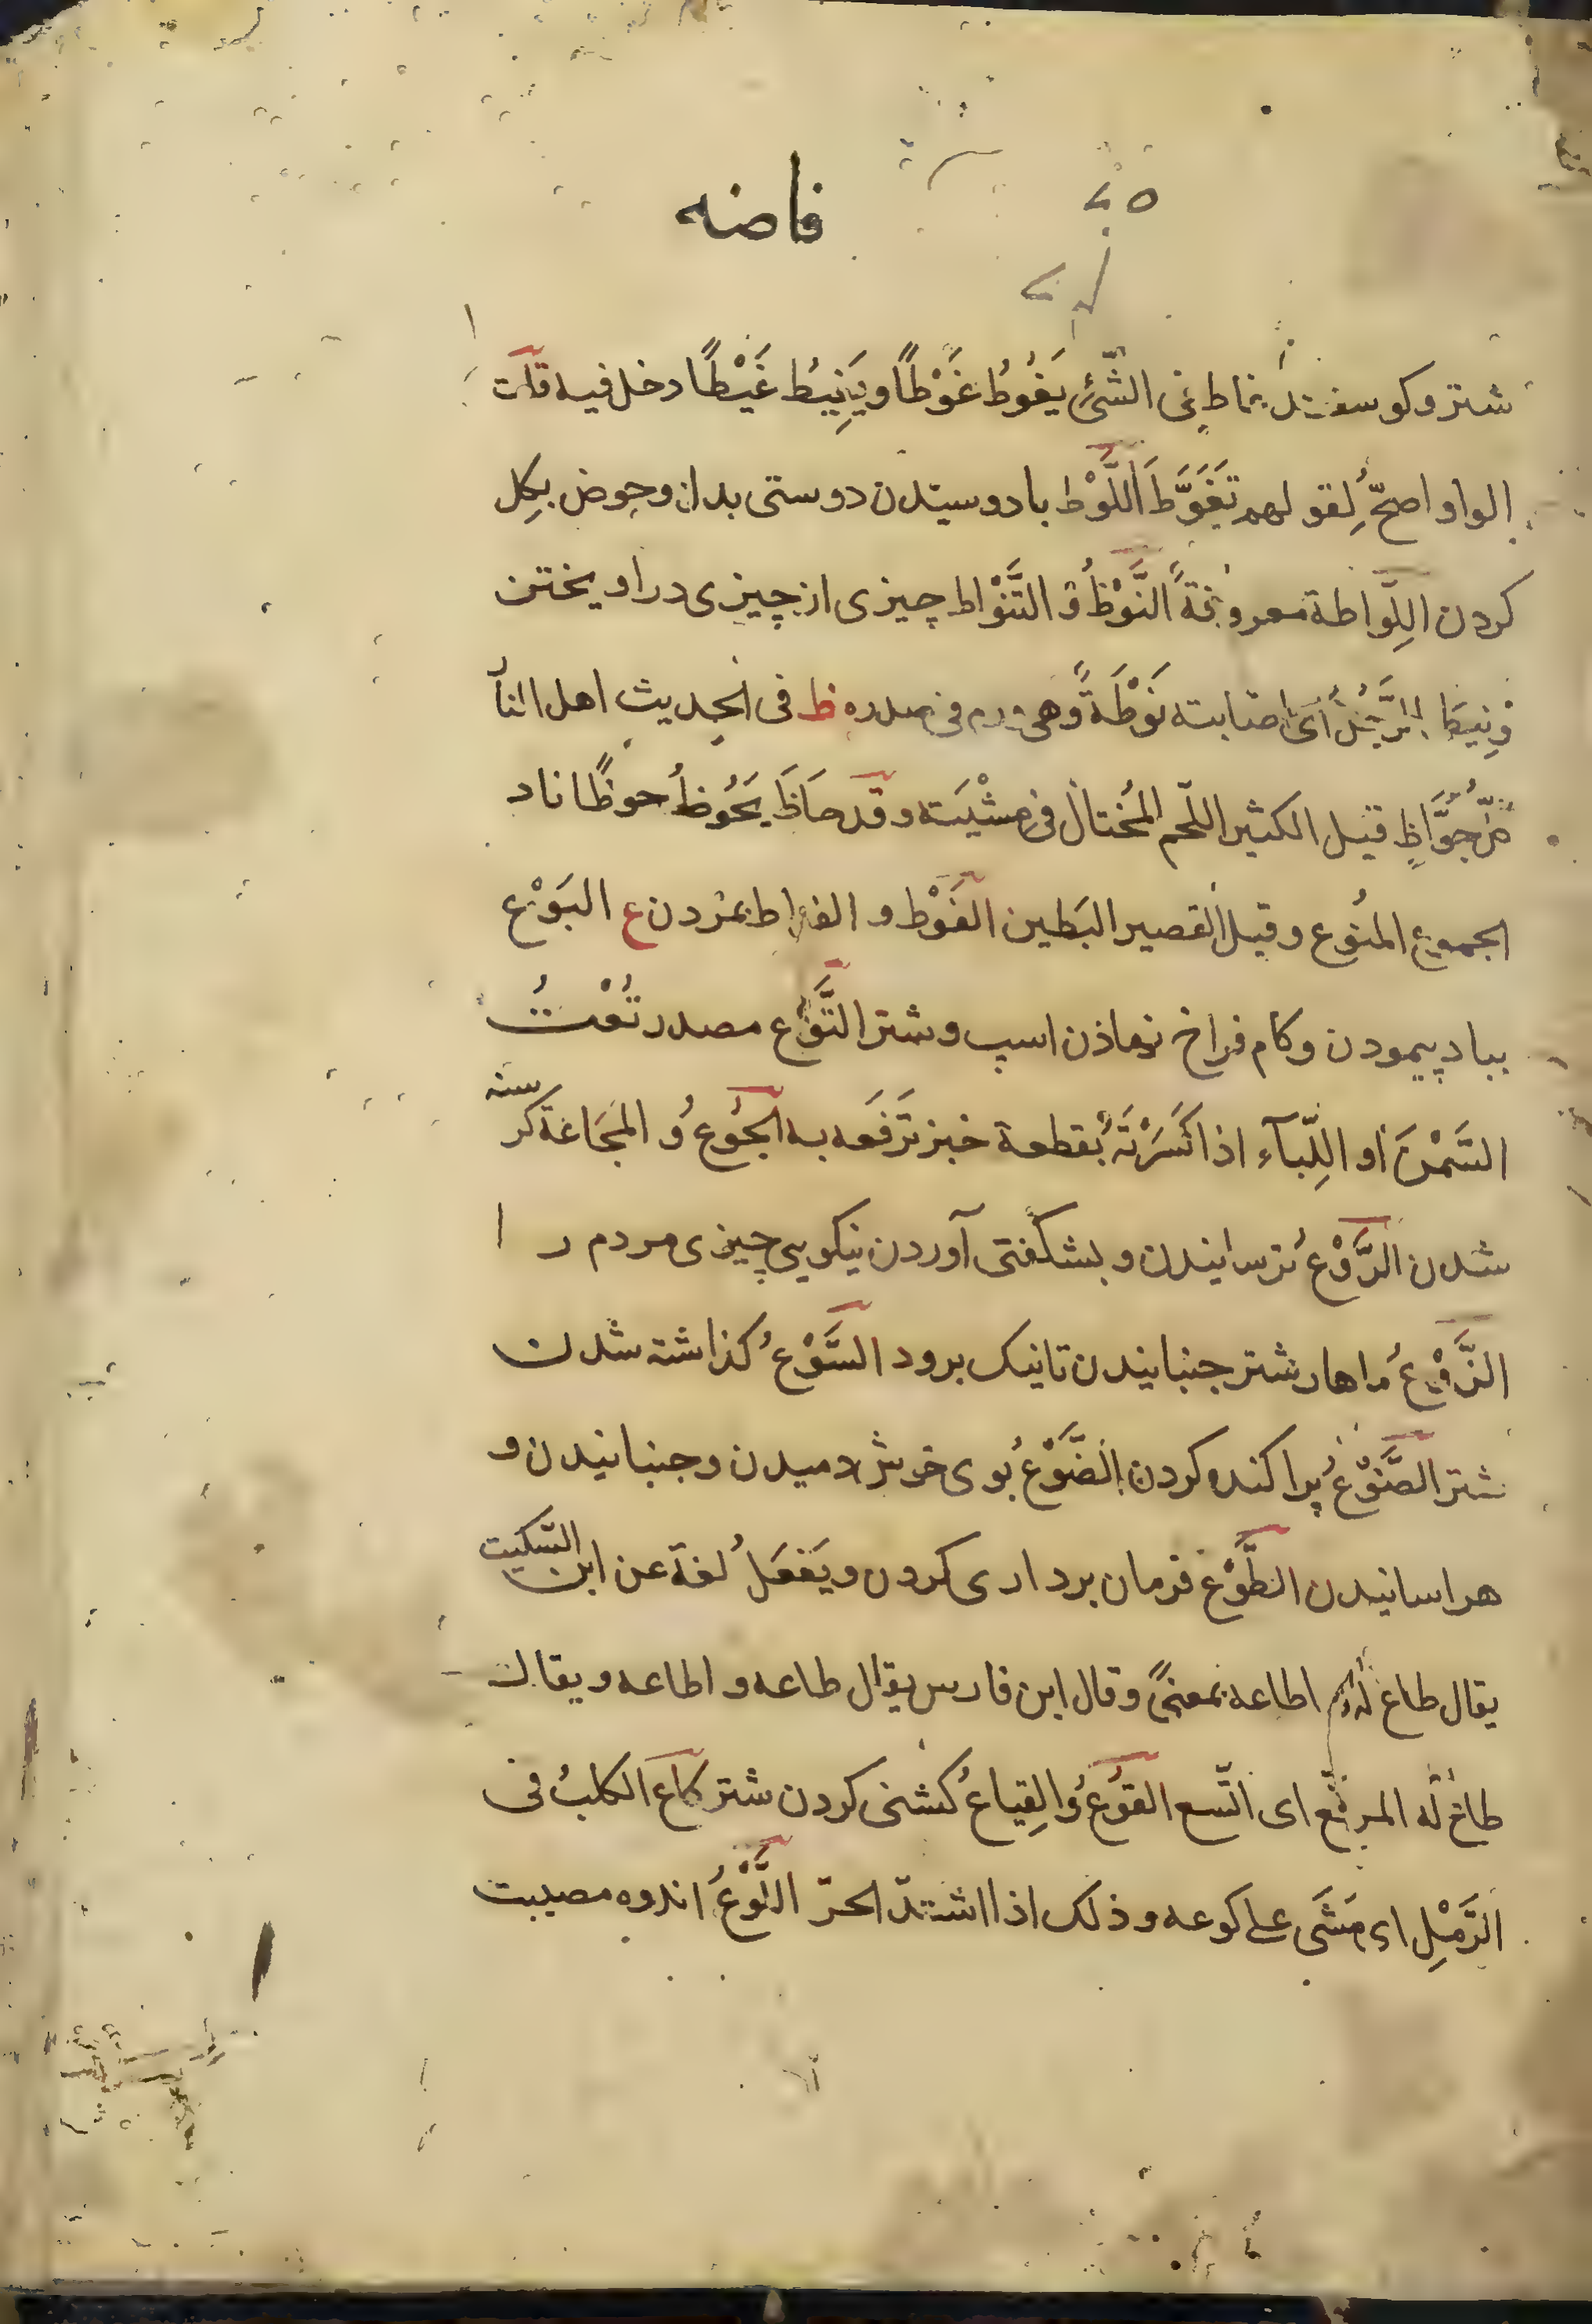 فاضه
شتر و کوسفند غاط فی الشّئ یَغُوطُ غَوْطًا و یَغِیطُ غَیْطًا دخل فیه قلت
الواو اصحّ لِقولهم تَغَوَّطَ اَللَّوْط بادوسیدن دوستی بدل و حوض بکِل
کردن اللِّواطة معروفة النَّوْطُ و التَّنْواط چیزی از چیزی دراویختن
وَنِیطَ الرَّجُلُ ای اصابته نَوْطَةٌ وهی ورم فی صدره ظ فی الحدیث اهل النا
کلّ جَوَّاظٍ قیل الکثیر اللّحم المُختال فی مِشْیَته و قد جَاظَ یَجُوظُ جوظًا ناد
الجموع المنُوع و قیل القصیر البَطین الفَوْظ و الفواظ بمردن ع البَوْع
بباد پیمودن و کام فراخ نهاذن اسپ و شتر التَّوْع مصدر تُعْتُ
السَّمْنَ او اللِّبآء اذا کَسَرْتَهُ بقطعة خبز تَرفَعه به الجُوعُ و المَجَاعَة کرسنه
شدن الرَّوْعُ ترسانیدن و بشکفتی آوردن نیکویی چیزی مردم را
الزَّوْعُ مراهار شتر جنبانیدن تانیک برود السَّوْعُ کذاشته شدن
شتر الصَّوْعُ پراکنده کردن الضَّوْعُ بوی خوش دمیدن و جنبانیدن و
هراسانیدن الطَّوْع فرمان برداری کردن و یَفعَلُ لغة عن ابن السّکیت
یقال طاع له و اطاعه بمعنیً و قال ابن فارس یقال طاعه و اطاعه و یقال
طاع له المرتع ای اتّسع القَوْعُ و القِیاعُ کشنی کردن شتر کاعَ الکلبُ فی
الرَّمْلِ ای مَشَی علی کوعه و ذلک اذا اشتدّ الحرّ اللَّوْعُ اندوه مصیبت